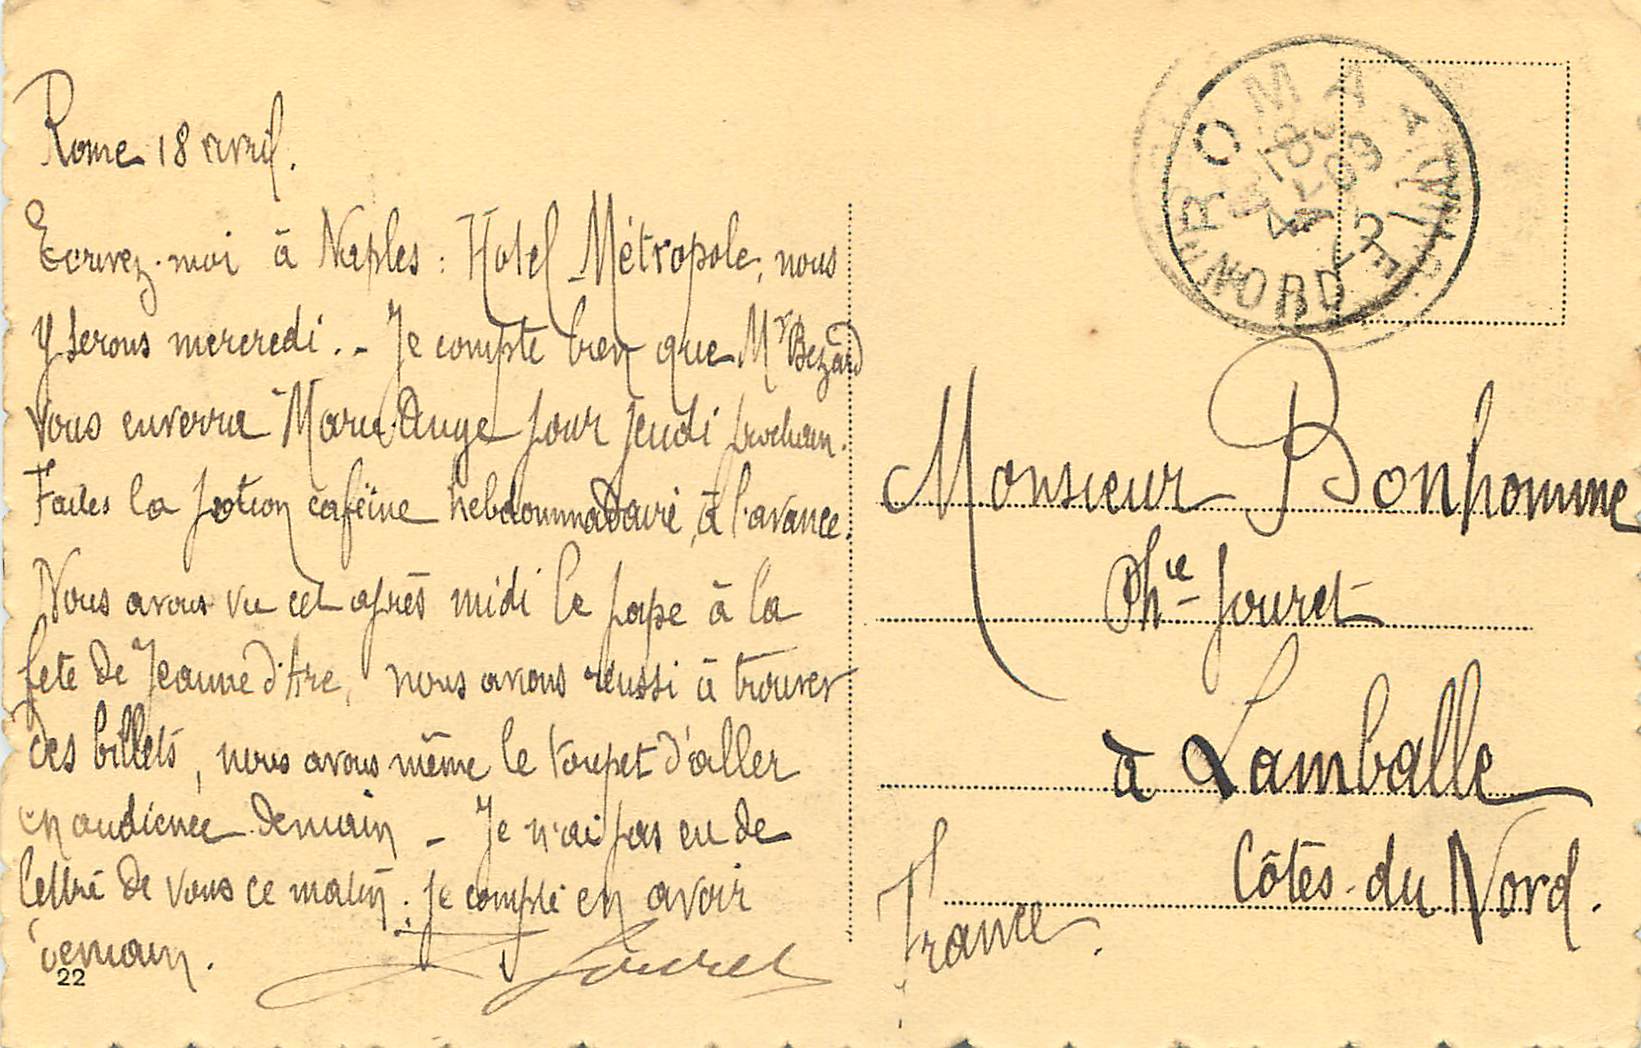 Rome 18 avril.
Ecrivez-moi à Naples : Hotel Métropole, nous
y serons mercredi. - Je compte bien que Mr Bezard
vous enverra Marie-Ange pour jeudi prochain.
Faites la potion caféine hebdommadaire, à l'avance.
Nous avons vu cet après midi le pape à la
fete de Jeanne d'Arc, nous avons réussi à trouver
des billets, nous avons même le toupet d'aller
en audience demain - Je n'ai pas eu de
lettre de vous ce matin ; je compte en avoir
demain.
Jouret
22
ROMA
18
4
09
NORD
Monsieur Bonhomme
Phie Jouret
à Lamballe
Côtes-du Nord.
France.